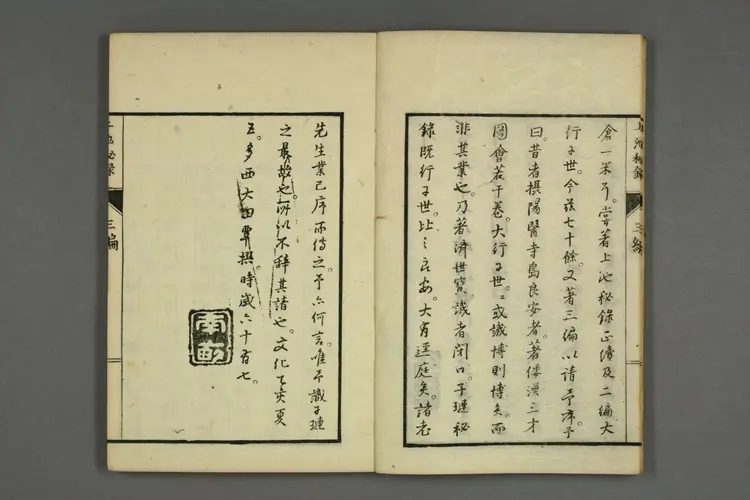 倉一米耳。嘗著上池秘錄正續及二編大
行于世。今茲七十餘。又著三編以請予序。予
曰。昔者攝陽醫寺島良安者。著倭漢三才
圖會若干卷。大行于世。或譏博則博矣。而
非其業也。乃著濟世寶。譏者閉口。子璉秘
錄既行于世。比之良安。大有逕庭矣。諸老
先生業已序而傳之。予亦何言。唯予識子璉
之最故也。所以不辭其請也。文化乙亥夏
五。多西大田覃撰。時歲六十有七。
上池秘錄
三編
上池秘錄
三編
南畝